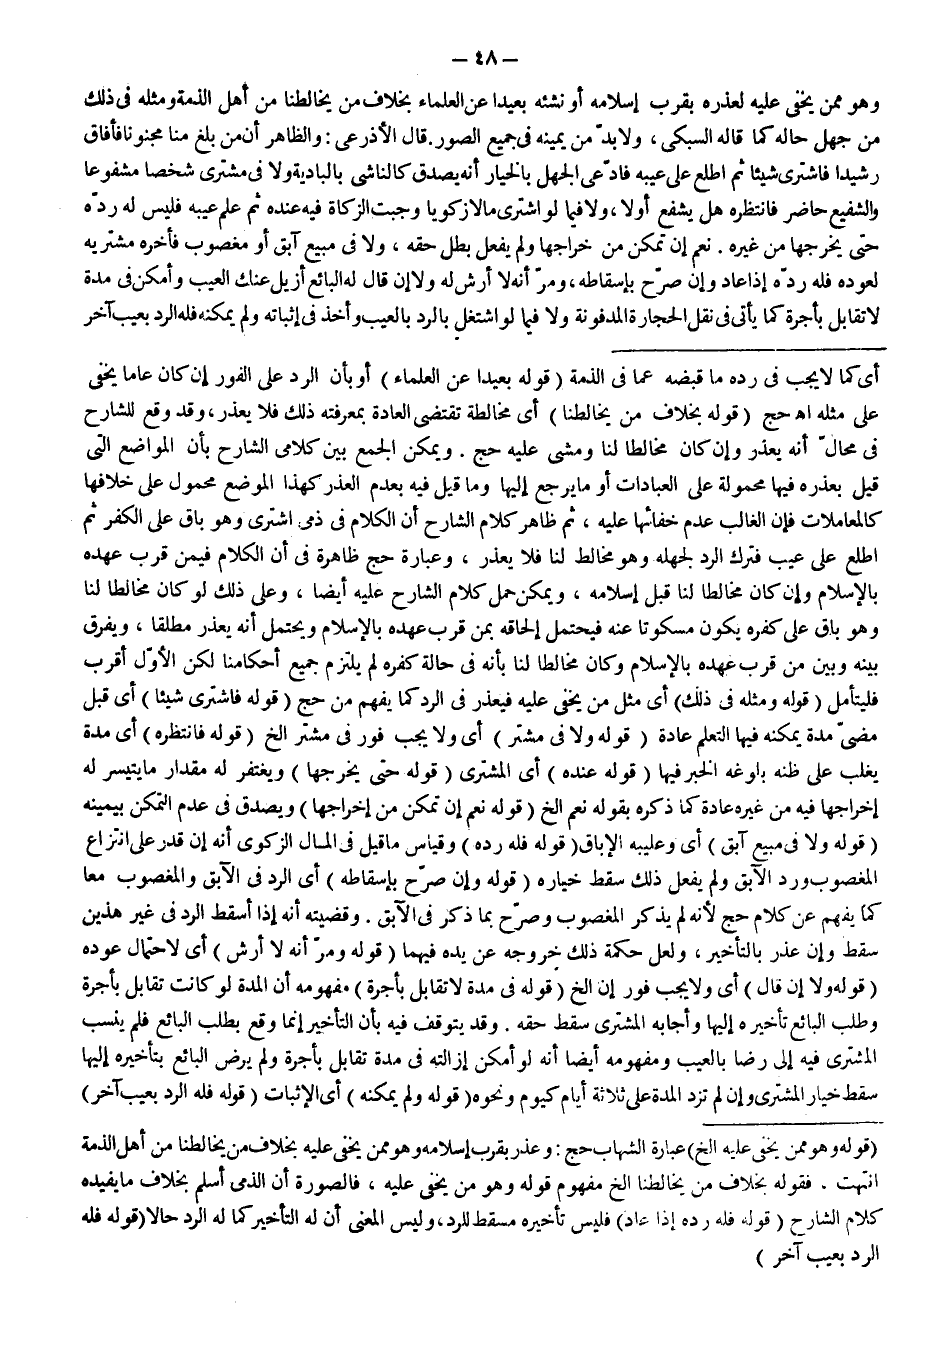 — ٤٨ —
وهو ممن يخفى عليه لعذره بقرب إسلامه أو نشئه بعيدا عن العلماء بخلاف من يخالطنا من أهل الذمة ومثله فى ذلك
من جهل حاله كما قاله السبكى ، ولا بدّ من يمينه فى جميع الصور . قال الأذرعى : والظاهر أن من بلغ منا مجنونا فأفاق
رشيدا فاشترى شيئا ثم اطلع على عيبه فادّعى الجهل بالخيار أنه يصدق كالناشى بالبادية ولا فى مشترى شخصا مشفوعا
والشفيع حاضر فانتظره هل يشفع أولا ، ولا فيما لو اشترى مالا زكويا وجبت الزكاة فيه عنده ثم علم عيبه فليس له ردّه
حتى يخرجها من غيره . نعم إن تمكن من خراجها ولم يفعل بطل حقه ، ولا فى مبيع آبق أو مغصوب فأخره مشتريه
لعوده فله ردّه إذا عاد وإن صرّح بإسقاطه ، ومرّ أنه لا أرش له ولا إن قال له البائع أزيل عنك العيب وأمكن فى مدة
لا تقابل بأجرة كما يأتى فى نقل الحجارة المدفونة ولا فيما لو اشتغل بالرد بالعيب وأخذ فى إثباته ولم يمكنه فله الرد بعيب آخر
أى كما لا يجب فى رده ما قبضه عما فى الذمة ( قوله بعيدا عن العلماء ) أو بأن الرد على الفور إن كان عاما يخفى
على مثله اه حج ( قوله بخلاف من يخالطنا ) أى مخالطة تقتضى العادة بمعرفته ذلك فلا يعذر ، وقد وقع للشارح
فى محالّ أنه يعذر وإن كان مخالطا لنا ومشى عليه حج . ويمكن الجمع بين كلامى الشارح بأن المواضع التى
قيل بعذره فيها محمولة على العبادات أو ما يرجع إليها وما قيل فيه بعدم العذر كهذا الموضع محمول على خلافها
كالمعاملات فإن الغالب عدم خفائها عليه ، ثم ظاهر كلام الشارح أن الكلام فى ذمى اشترى وهو باق على الكفر ثم
اطلع على عيب فترك الرد لجهله وهو مخالط لنا فلا يعذر ، وعبارة حج ظاهرة فى أن الكلام فيمن قرب عهده
بالإسلام وإن كان مخالطا لنا قبل إسلامه ، ويمكن حمل كلام الشارح عليه أيضا ، وعلى ذلك لو كان مخالطا لنا
وهو باق على كفره يكون مسكوتا عنه فيحتمل إلحاقه بمن قرب عهده بالإسلام ويحتمل أنه يعذر مطلقا ، ويفرق
بينه وبين من قرب عهده بالإسلام وكان مخالطا لنا بأنه فى حالة كفره لم يلتزم جميع أحكامنا لكن الأوّل أقرب
فليتأمل ( قوله ومثله فى ذلك) أى مثل من يخفى عليه فيعذر فى الرد كما يفهم من حج ( قوله فاشترى شيئا ) أى قبل
مضىّ مدة يمكنه فيها التعلم عادة ( قوله ولا فى مشتر ) أى ولا يجب فور فى مشتر الخ ( قوله فانتظره ) أى مدة
يغلب على ظنه بلوغه الخبر فيها ( قوله عنده ) أى المشترى ( قوله حتى يخرجها ) ويغتفر له مقدار ما يتيسر له
إخراجها فيه من غيره عادة كما ذكره بقوله نعم الخ ( قوله نعم إن تمكن من إخراجها ) ويصدق فى عدم التمكن بيمينه
( قوله ولا فى مبيع آبق ) أى وعليبه الإباق ( قوله فله رده ) وقياس ما قيل فى المال الزكوى أنه إن قدر على انتزاع
المغصوب ورد الآبق ولم يفعل ذلك سقط خياره ( قوله وإن صرّح بإسقاطه ) أى الرد فى الآبق والمغصوب معا
كما يفهم عن كلام حج لأنه لم يذكر المغصوب وصرّح بما ذكر فى الآبق . وقضيته أنه إذا أسقط الرد فى غير هذين
سقط وإن عذر بالتأخير ، ولعل حكمة ذلك خروجه عن يده فيهما ( قوله ومرّ أنه لا أرش ) أى لاحتمال عوده
( قوله ولا إن قال ) أى ولا يجب فور إن الخ ( قوله فى مدة لا تقابل بأجرة ) مفهومه أن المدة لو كانت تقابل بأجرة
وطلب البائع تأخيره إليها وأجابه المشترى سقط حقه . وقد يتوقف فيه بأن التأخير إنما وقع بطلب البائع فلم ينسب
المشترى فيه إلى رضا بالعيب ومفهومه أيضا أنه لو أمكن إزالته فى مدة تقابل بأجرة ولم يرض البائع بتأخيره إليها
سقط خيار المشترى وإن لم تزد المدة على ثلاثة أيام كيوم ونحوه ( قوله ولم يمكنه ) أى الإثبات ( قوله فله الرد بعيب آخر )
(قوله وهو ممن يخفى عليه الخ) عبارة الشهاب حج : وعذر بقرب إسلامه وهو ممن يخفى عليه بخلاف من يخالطنا من أهل الذمة
انتهت . فقوله بخلاف من يخالطنا الخ مفهوم قوله وهو من يخفى عليه ، فالصورة أن الذمى أسلم بخلاف ما يفيده
كلام الشارح ( قوله فله رده إذا عاد) فليس تأخيره مسقط للرد ، وليس المعنى أن له التأخير كما له الرد حالا (قوله فله
الرد بعيب آخر )